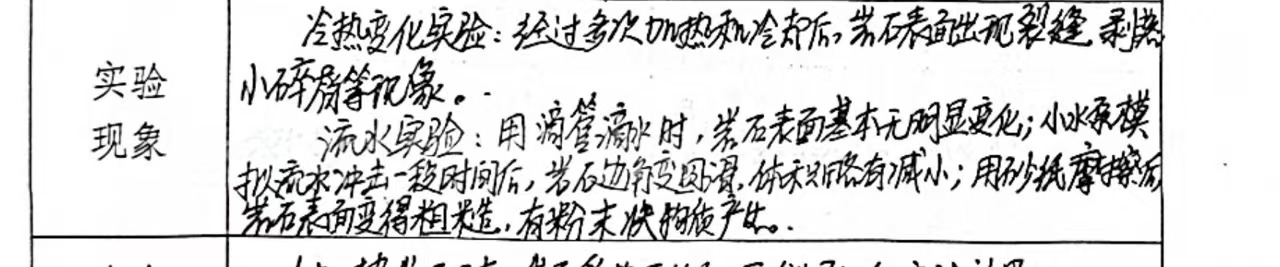 实验
现象
冷热变化实验：经过多次加热和冷却后，岩石表面出现裂缝、剥落
小碎屑等现象。
流水实验：用滴管滴水时，岩石表面基本无明显变化；小水泵模
拟流水冲击一段时间后，岩石边角变圆滑，体积略有减小；用砂纸摩擦后，
岩石表面变得粗糙，有粉末状物质产生。